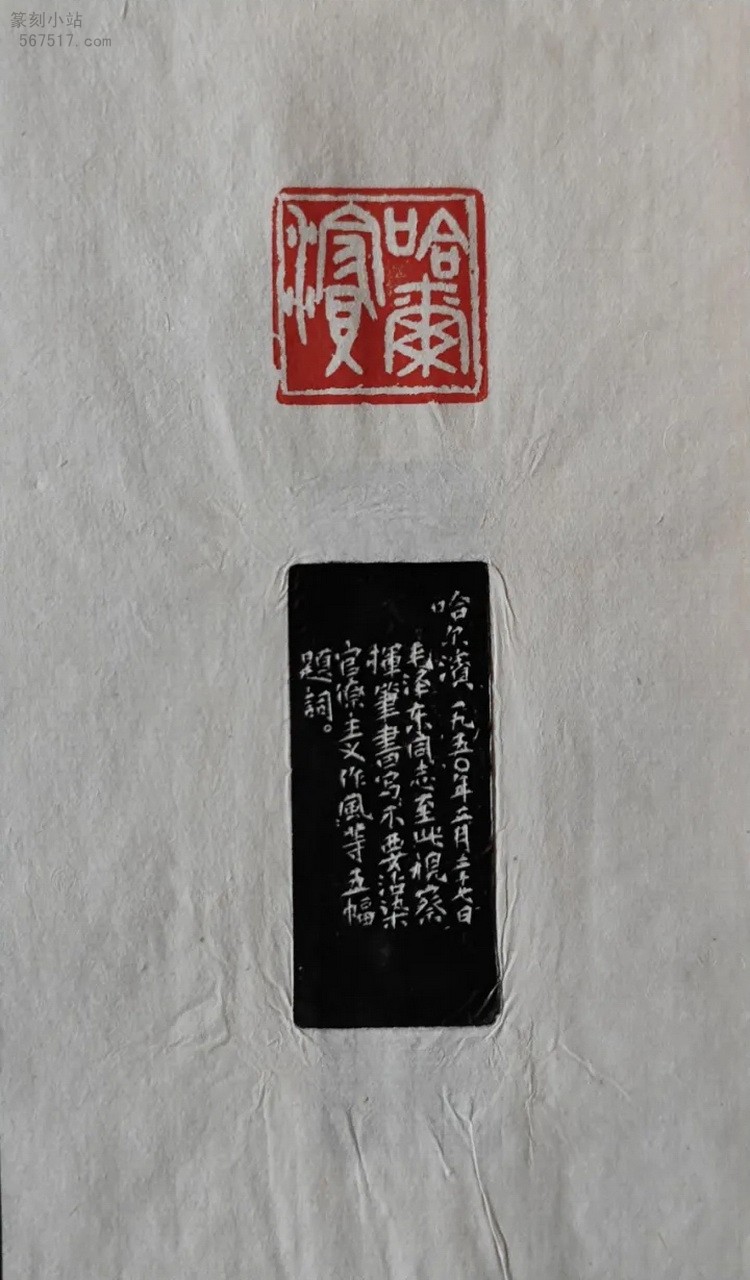 篆刻小站
567517.com
哈爾
濱
哈尔濱一九五〇年二月二十七日
毛泽东同志至此視察
揮筆書写不要沾染
官僚主义作風等五幅
題詞。